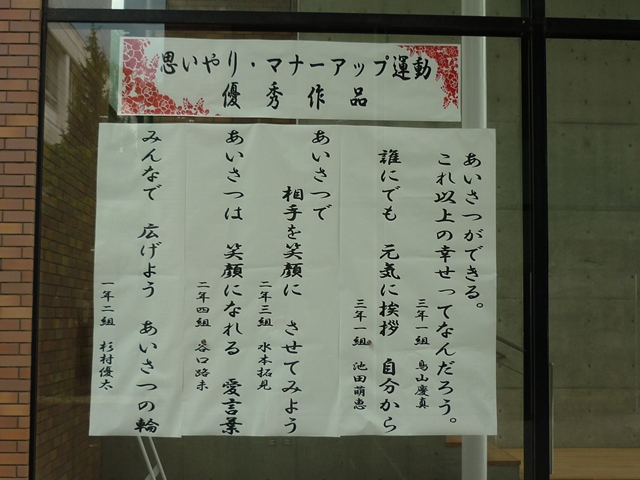 思いやり・マナーアップ運動
優秀作品
あいさつができる。
これ以上の幸せってなんだろう。
三年一組 鳥山慶真
誰にでも 元気に挨拶 自分から
三年一組 池田萌恵
あいさつで
相手を笑顔に させてみよう
二年三組 水本拓見
あいさつは 笑顔になれる 愛言葉
二年四組 谷口路未
みんなで 広げよう あいさつの輪
一年二組 杉村優太